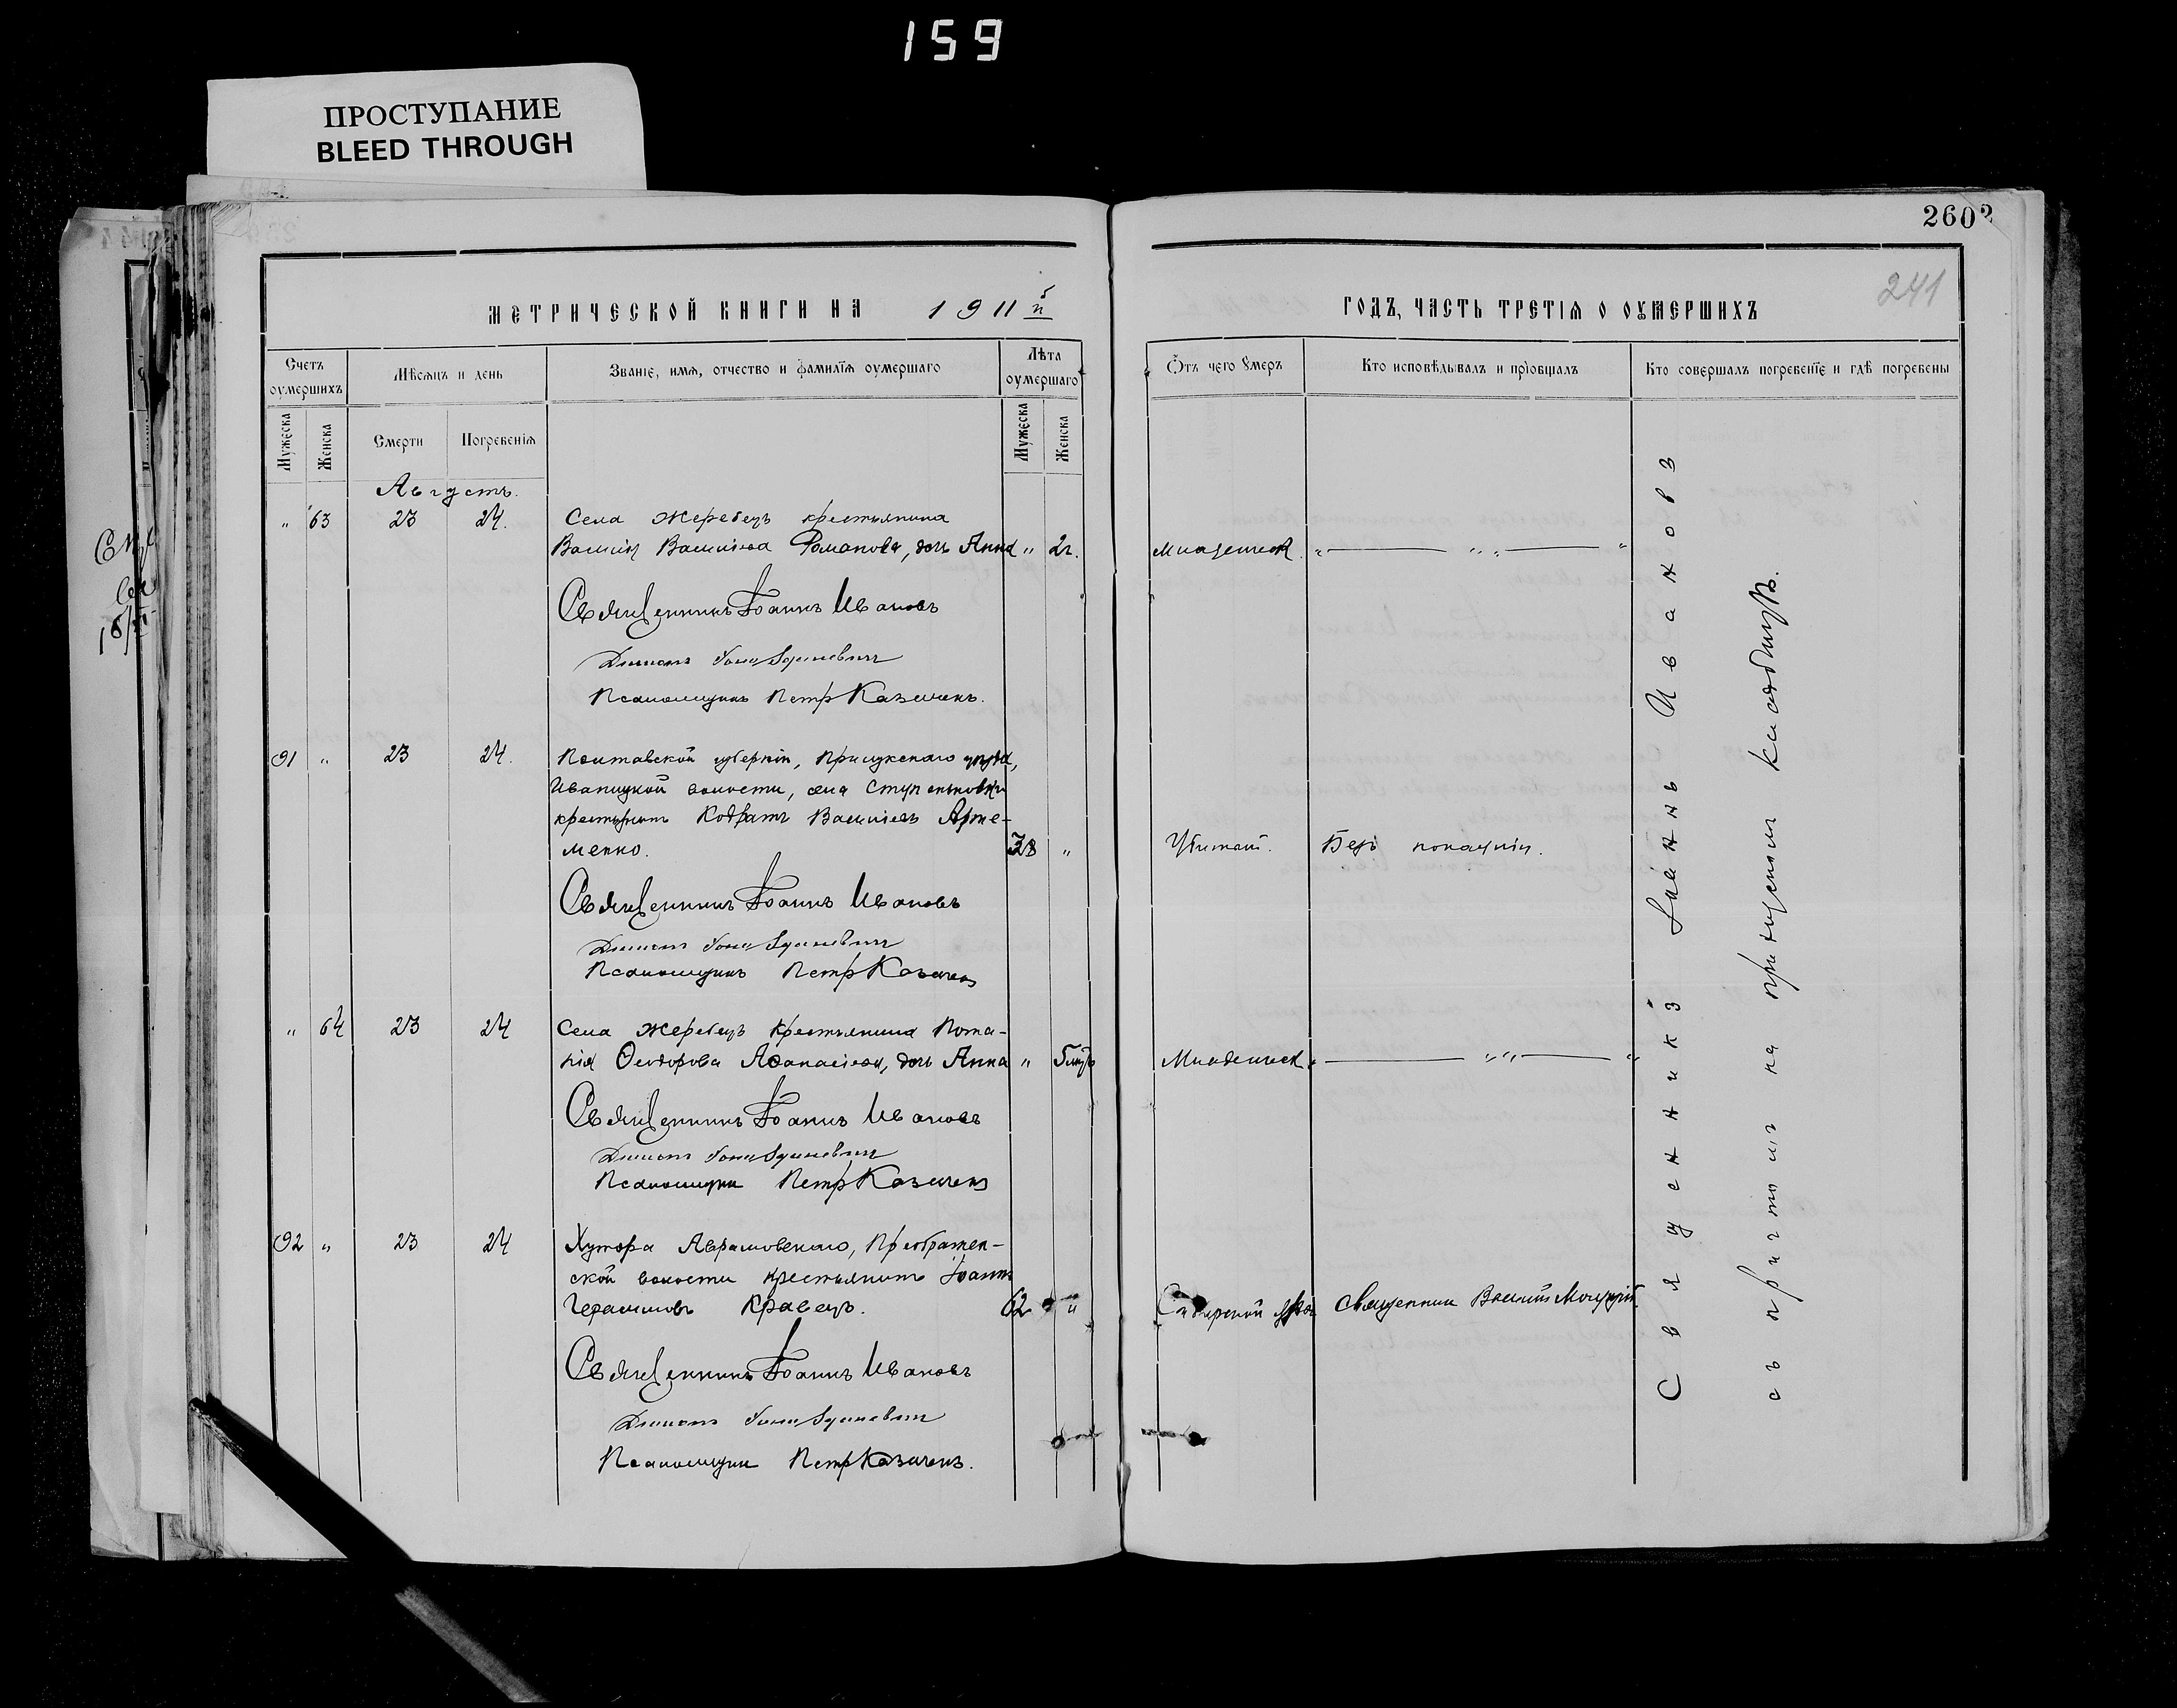 159
ПРОСТУПАНИЕ
BLEED THROUGH
2602
241
МЕТРИЧЕСКОЙ КНИГИ НА 1911 й
ГОДЪ, ЧАСТЬ ТРЕТІЯ О ОУМЕРШИХЪ
Счетъ оумершихъ
Мѣсяцъ и день
Званіе, имя, отчество и фамилія оумершаго
Лѣта оумершаго
Отъ чего умеръ
Кто исповѣдывалъ и пріобщалъ
Кто совершалъ погребеніе и гдѣ погребены
Мужеска
Женска
Смерти
Погребенія
Мужеска
Женска
Августъ.
" 63 23 24. Села Жеребецъ крестьянина
Василія Васильева Романова, дочь Анна " 2г. Младенческ. " " "
Священникъ Іоаннъ Ивановъ
Діаконъ
Псаломщикъ Петръ Казачекъ.
91 " 23 24. Полтавской губерніи, Прилукскаго уѣзда,
Иваницкой волости, села
крестьянинъ Кодратъ Васильевъ Арте-
менко. 38 " Убитый. Безъ покаянія.
Священникъ Іоаннъ Ивановъ
Діаконъ
Псаломщикъ Петръ Казачекъ
" 64 23 24 Села Жеребецъ крестьянина Пота-
пія Ѳеодорова Аѳанасьева, дочь Анна " Младенческ. " " "
Священникъ Іоаннъ Ивановъ
Діаконъ
Псаломщикъ Петръ Казачекъ
92 " 23 24 Хутора Аврамовскаго, Преображен-
ской волости крестьянинъ Іоаннъ
Герасимовъ Кравецъ. 62 " Сибирской язвы Священникъ Василій
Священникъ Іоаннъ Ивановъ
Діаконъ
Псаломщикъ Петръ Казачекъ.
Священникъ Іоаннъ Ивановъ
съ причтомъ на приходскомъ кладбищѣ.